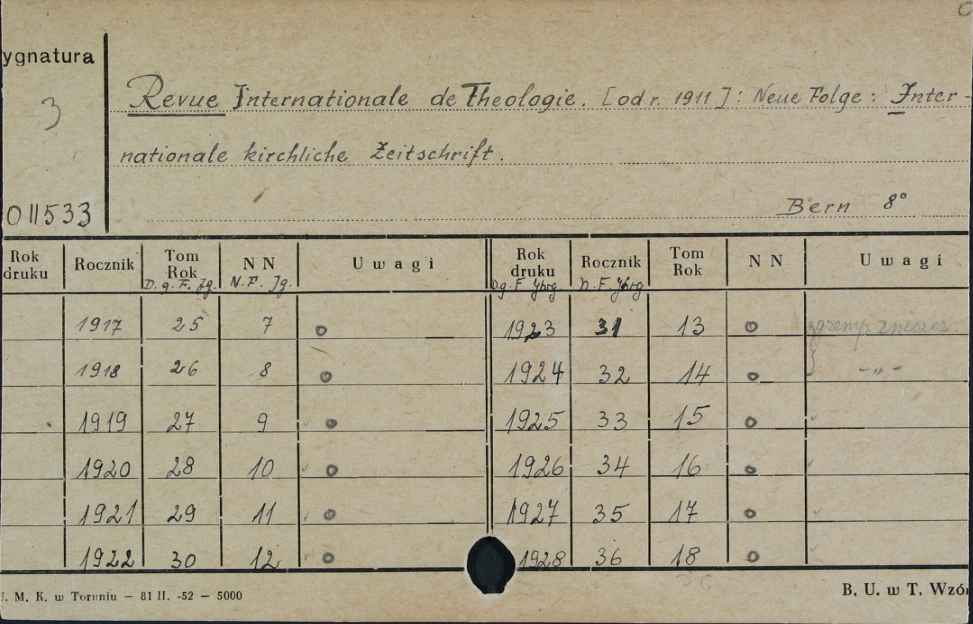 ygnatura
3
Revue Internationale de Theologie. [od r. 1911]: Neue Folge: Inter-
nationale kirchliche Zeitschrift.
011533
Bern 8°
Rok druku Rocznik Tom Rok N N Uwagi Rok druku Rocznik Tom Rok N N Uwagi
D. g. F. Jg. N. F. Jg. N. F. Jhrg
1917 25 7 1923 31 13
1918 26 8 1924 32 14 -„-
1919 27 9 1925 33 15
1920 28 10 1926 34 16
1921 29 11 1927 35 17
1922 30 12 1928 36 18
M. K. w Toruniu — 81 II. -52 — 5000
B. U. w T. Wzó